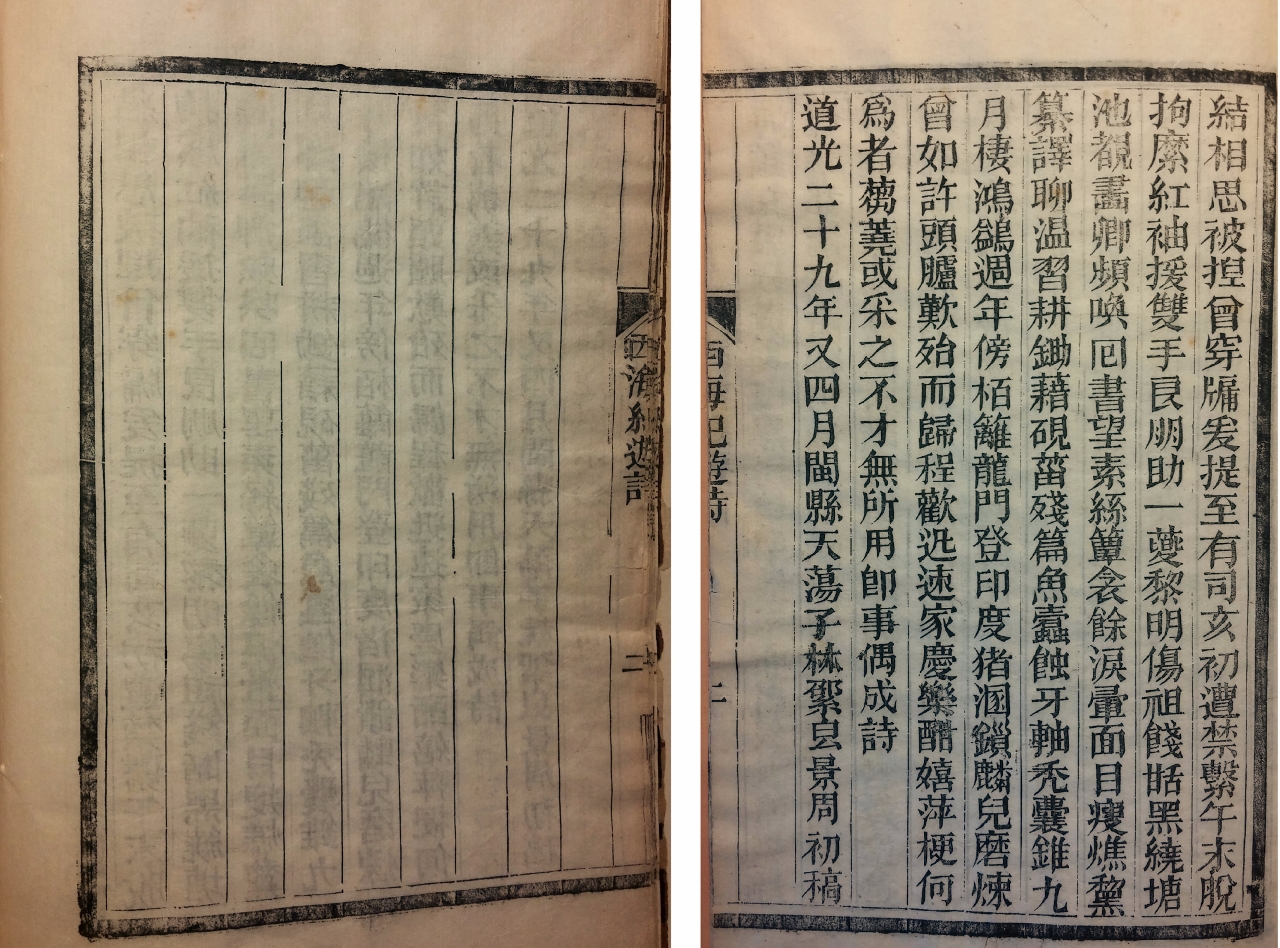 結相思被揑曾穿牖爰提至有司亥初遭禁繫午末脫
拘縻紅袖援雙手良朋助一夔黎明傷祖餞甛黑繞塘
池覩畵卿頻喚囘書望素絲簟衾餘淚暈面目瘦燋黧
纂譯聊温習耕鋤藉硯菑殘篇魚蠹蝕牙軸禿囊錐九
月棲鴻鷁週年傍栢籬龍門登印度猪溷鎻麟兒磨煉
曾如許頭臚歎殆而歸程歡迅速家慶樂酣嬉萍梗何
爲者蒭蕘或采之不才無所用卽事偶成詩
道光二十九年又四月閩縣天蕩子林景周初稿
西海紀遊詩
西海紀遊詩
二